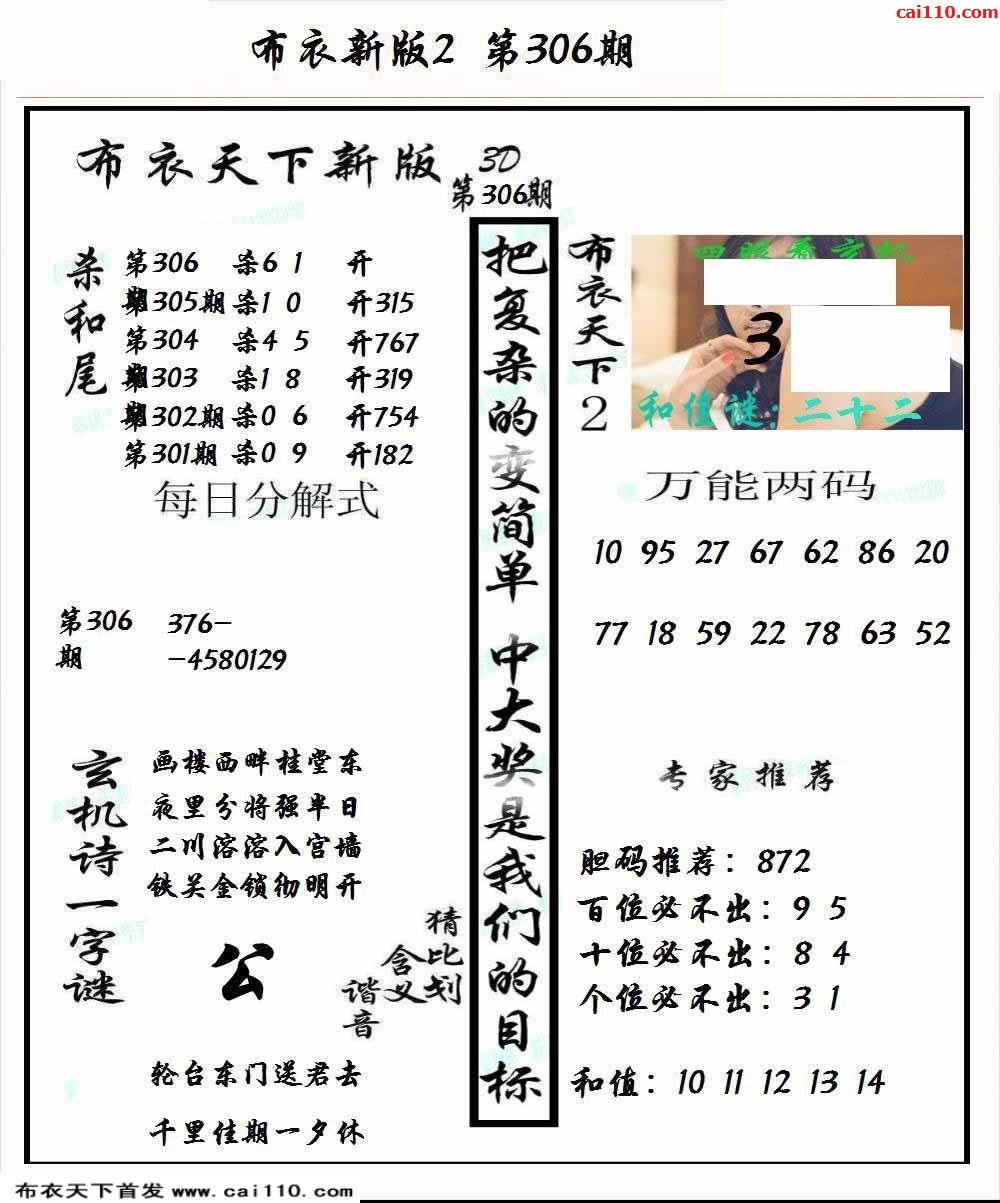 cai110.com
布衣新版2 第306期
布衣天下新版
3D
第306期
杀和尾
第306期 杀6 1 开
第305期 杀1 0 开315
第304期 杀4 5 开767
第303 杀1 8 开319
第302期 杀0 6 开754
第301期 杀0 9 开182
每日分解式
第306期
376-
-4580129
玄机诗一字谜
画楼西畔桂堂东
夜里分将强半日
二川溶溶入宫墙
铁关金锁彻明开
公
猜比划
含义
谐音
轮台东门送君去
千里佳期一夕休
把复杂的变简单 中大奖是我们的目标
布衣天下2
四眼看玄机
3
和值谜:二十二
万能两码
10 95 27 67 62 86 20
77 18 59 22 78 63 52
专家推荐
胆码推荐：872
百位必不出：9 5
十位必不出：8 4
个位必不出：3 1
和值：10 11 12 13 14
布衣天下首发 www.cai110.com